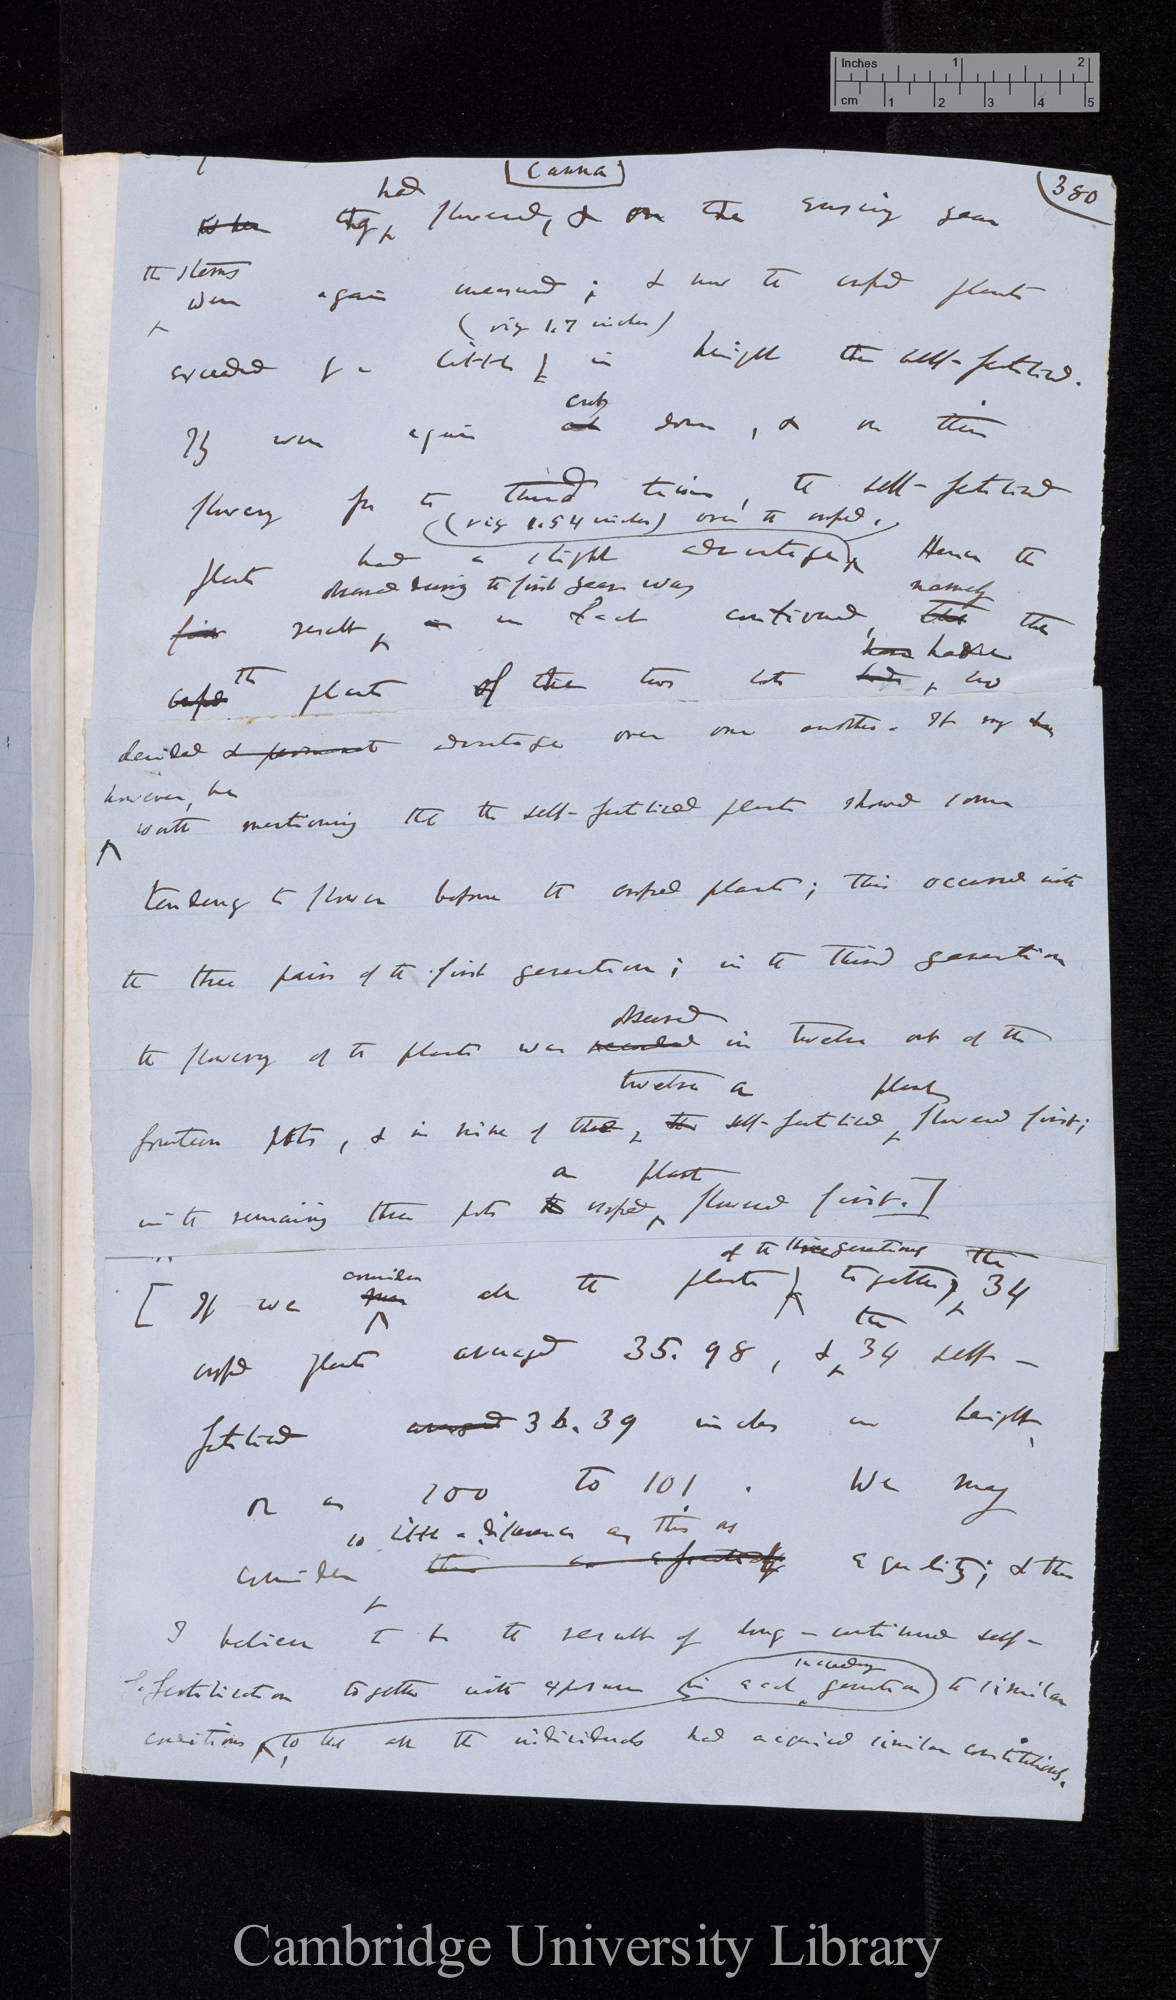 Inches 1 2
cm 1 2 3 4 5
(Canna)
380
had
they flowered, & on the ensuing year
the stems
were again measured; & now the crossed plants
(viz 1.7 inches)
exceeded by a little in height the self-fertilised.
cut
They were again cut down, & on their
flowering for the third time, the self-fertilised
(viz 1.54 inches) over the crossed.
plants had a slight advantage Hence the
observed during the first year was namely
result, in fact confirmed, that the
has had
the plants of these two lots no
decided & permanent advantage over one another. It may
however, be
worth mentioning that the self-fertilised plants showed some
tendency to flower before the crossed plants; this occurred with
the three pairs of the first generation; in the third generation
observed
the flowering of the plants was recorded in twelve out of the
twelve a plant
fourteen pots, & in nine of these the self-fertilised flowered first;
a plant
in the remaining three pots the crossed flowered first.]
of the three generations the
consider
[If we all the plants together, 34
the
crossed plants averaged 35.98, & 34 self-
fertilised averaged 36.39 inches in height,
or as 100 to 101. We may
so little a difference as this as
consider equality; & this
I believe to be the result of long-continued self-
succeeding
fertilisation together with exposure in each generation to similar
conditions, so that all the individuals had acquired similar constitutions.
Cambridge University Library